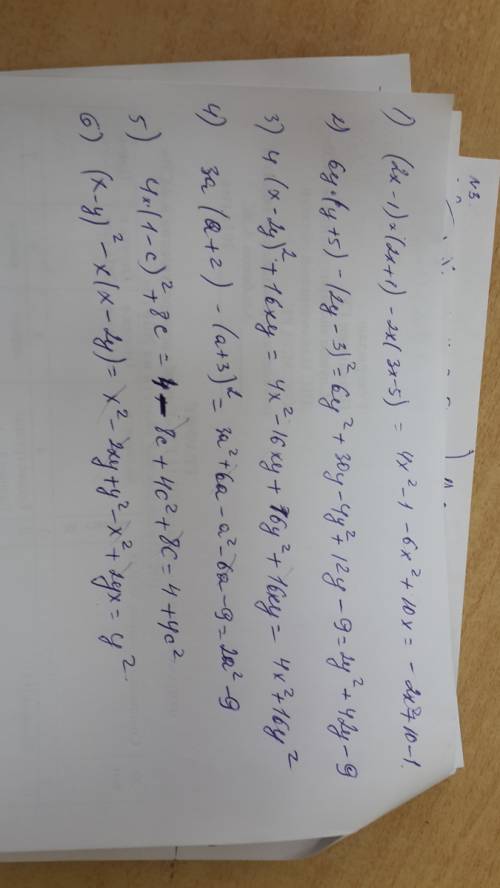 N3.
1) (2x-1)×(2x+1) - 2x(3x-5) = 4x²-1-6x²+10x = -2x²+10-1.
2) 6y·(y+5) - (2y-3)² = 6y²+30y-4y²+12y-9 = 2y²+42y-9
3) 4(x-2y)²+16xy = 4x²-16xy+16y²+16xy = 4x²+16y²
4) 3a(a+2) - (a+3)² = 3a²+6a-a²-6a-9 = 2a²-9
5) 4×(1-c)²+8c = 4-8c+4c²+8c = 4+4c²
6) (x-y)²-x(x-2y) = x²-2xy+y²-x²+2yx = y²